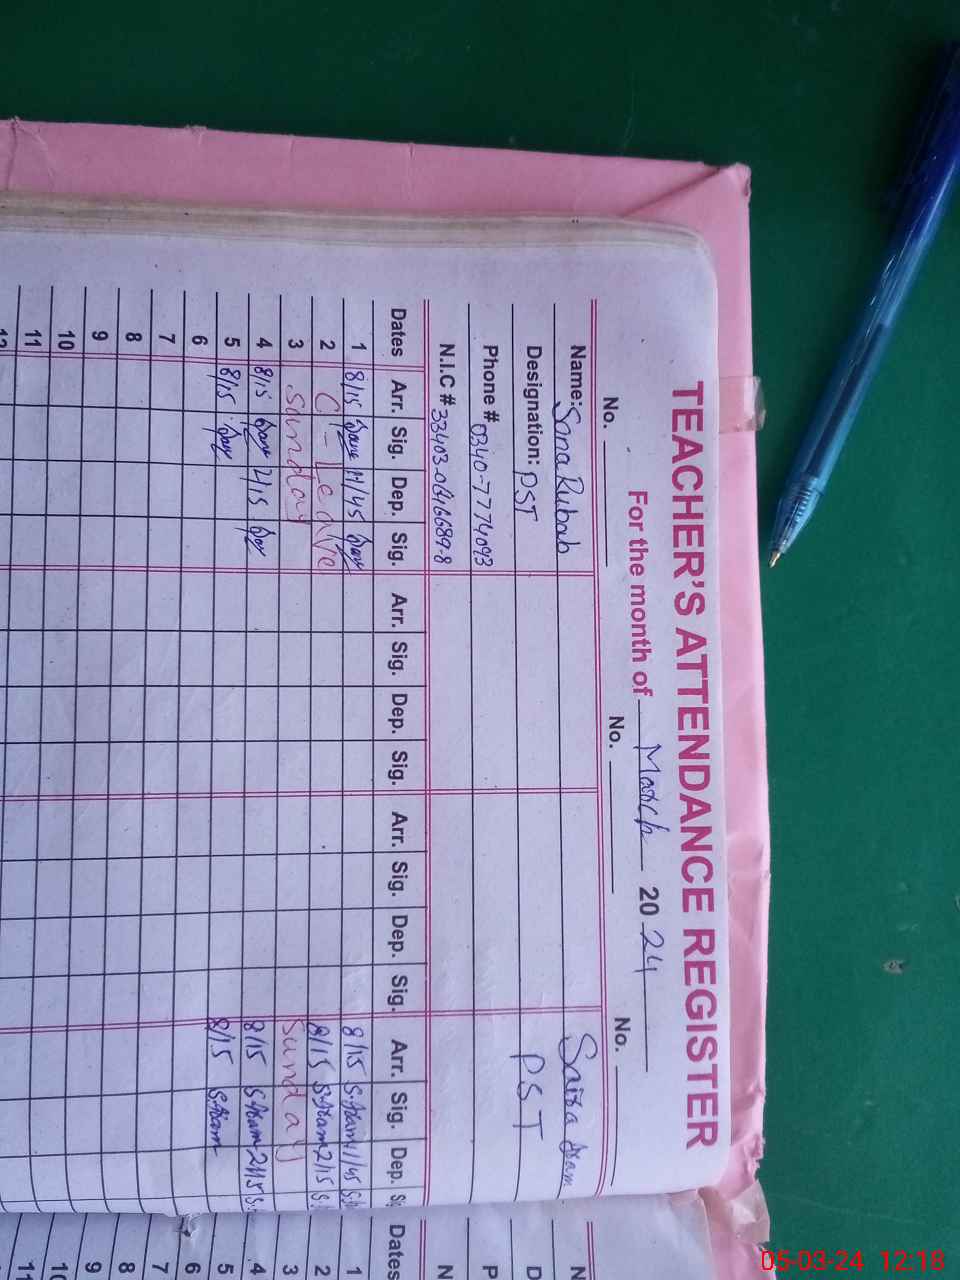 TEACHER'S ATTENDANCE REGISTER
For the month of March 2024
No. No. No.
Name: Sana Rubab Saira Akram
Designation: PST PST
Phone # 0340-7774093
N.I.C # 33403-0646689-8
Dates Arr. Sig. Dep. Sig. Arr. Sig. Dep. Sig. Arr. Sig. Dep. Sig. Arr. Sig. Dep.
1 8/15 11/45 8/15 S.Akram 11/45
2 C-Leave 8/15 S.Akram 2/15
3 Sunday Sunday
4 8/15 2/15 8/15 S.Akram 2/15
5 8/15 8/15 S.Akram
6
7
8
9
10
11
12
Dates
1
2
3
4
5
6
7
8
9
10
11
05-03-24 12:18